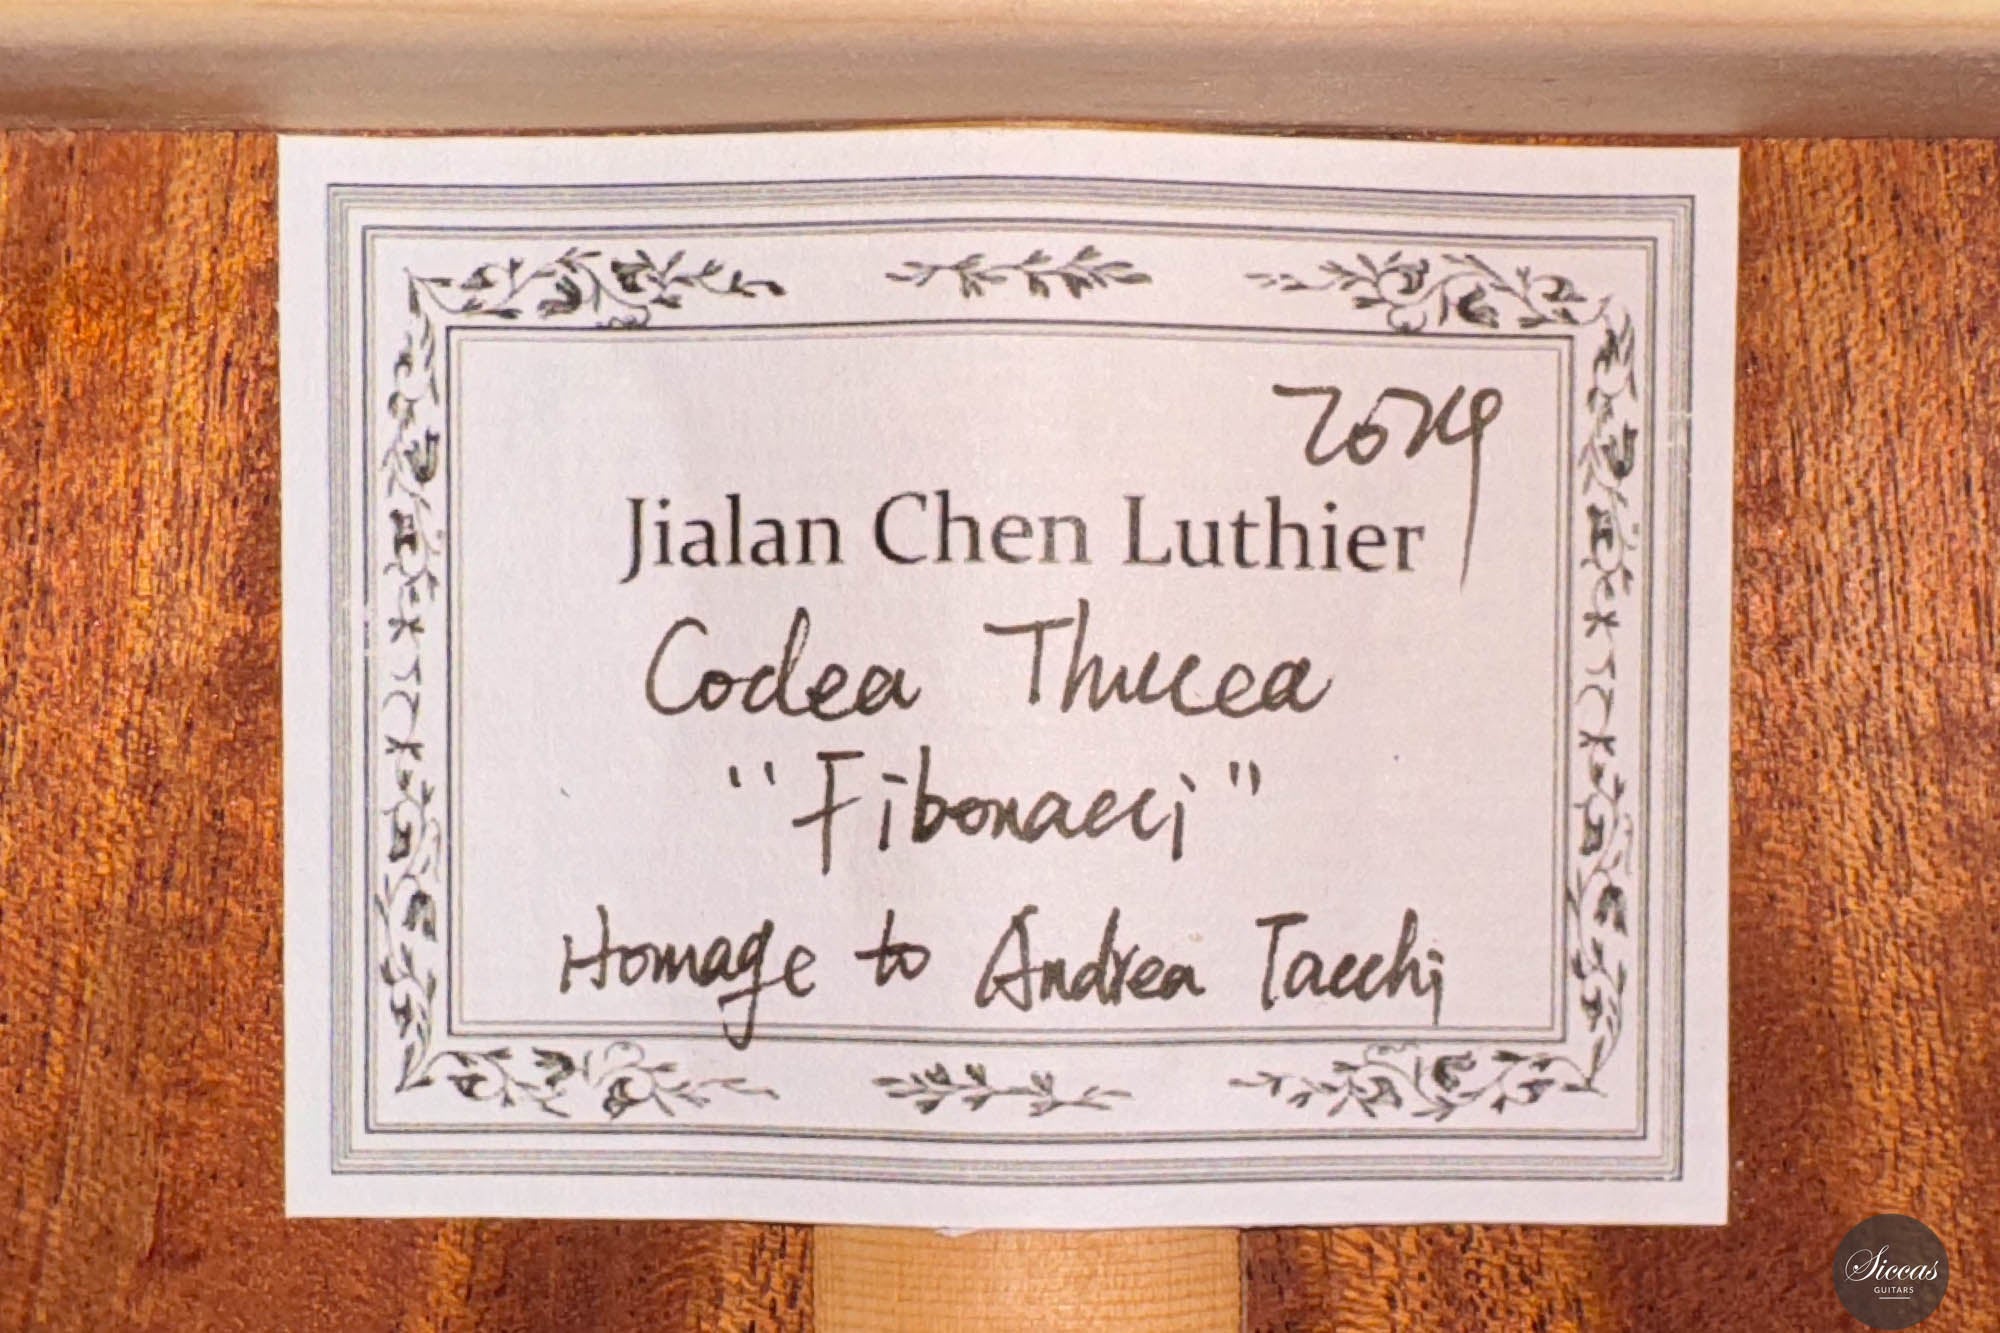 2024
Jialan Chen Luthier
Coclea Thucea
"Fibonacci"
Homage to Andrea Tacchi
Siccas
GUITARS